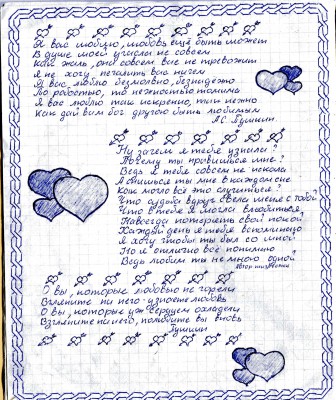 Я вас любил, любовь ещё быть может
В душе моей угасла не совсем
Но я не хочу печалить вас ничем
Я вас любил безмолвно, безнадежно
То робостью, то нежностью томим
Я вас любил так искренно, так нежно
Как дай вам бог другою быть любимым
А.С. Пушкин
Ну зачем я тебя узнала?
Почему ты привиделся мне?
Ведь я тебя совсем не искала
Как могло всё это случиться?
Что судьба вдруг свела меня с тобой
Что в тебя я могла влюбиться
Навсегда потерять свой покой
Каждый день я тебя вспоминаю
Я хочу чтобы ты был со мной
Но я отлично всё понимаю
Ведь любим ты не мною одной
О вы, которые любовью не горели
Взгляните на него - узнаете любовь
О вы, которые уж сердцем охладели
Взгляните на него, полюбите вы вновь
Пушкин